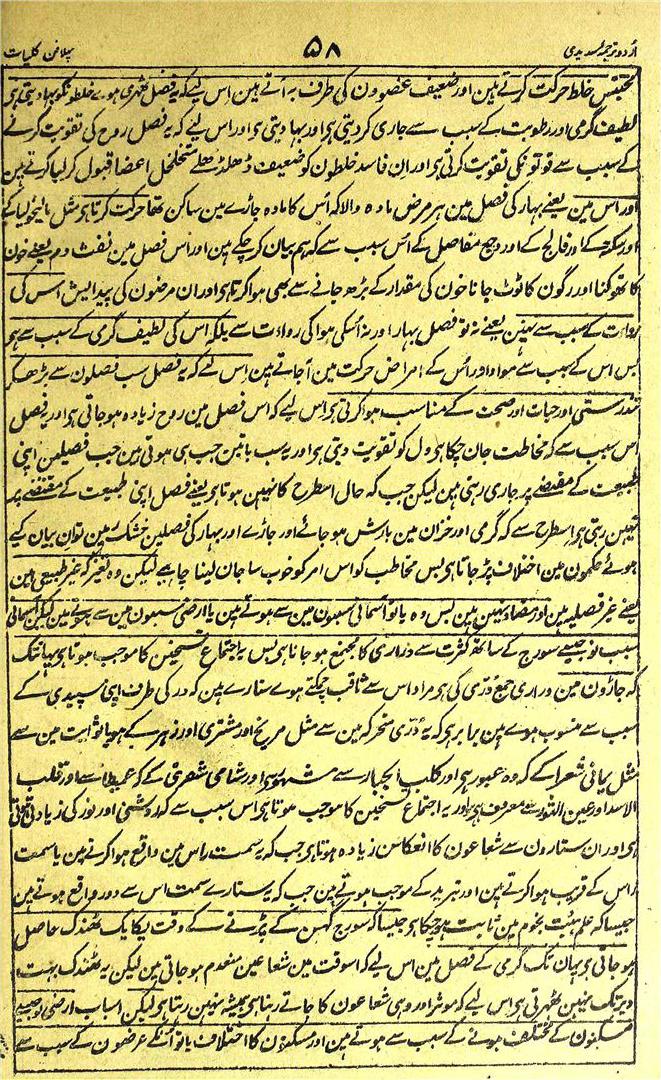 اُردو ترجمہ سدیدی ۵۸ پہلا فن کلیات
محتبس خلط حرکت کرتے ہین اور ضعیف عضوون کی طرف بہ آتے ہین اس لیے کہ یہ فصل ٹھہری ہوے خلطونکو بہا دیتی ہی
لطیف گرمی اور رطوبت کے سبب سے جاری کر دیتی ہی اور بہا دیتی ہی اور اس لیے کہ یہ فصل روح کی تقویت کرنے
کے سبب سے قوتونکی تقویت کرتی ہی اور ان فاسد خلطون کو ضعیف ڈھلڈھلے متخلخل اعضا قبول کر لیا کرتے ہین
اور اس مین یعنے بہار کی فصل مین ہر مرض مادہ والا کہ اُس کا مادہ جاڑے مین ساکن تھا حرکت کرتا ہی مثل مالیخولیا کے
اور سکتہ کے اور فالج کے اور وجع مفاصل کے اُس سبب سے کہ ہم بیان کر چکے ہین اور اس فصل مین نفث دم یعنے خون
کا تھوکنا اور رگون کا ٹوٹ جانا خون کی مقدار کے بڑھ جانے سے بھی ہوا کرتا ہی اور ان مرضون کی پیدایش اس کی
رداءت کے سبب سے نہین یعنے نہ تو فصل بہار اور نہ اُسکی ہوا کی رداءت سے بلکہ اس کی لطیف گرمی کے سبب سے ہی
بس اس کے سبب سے مواد اور اُس کے امراض حرکت مین آ جاتے ہین اس لیے کہ یہ فصل سب فصلون سے بڑھ کر
تندرستی اور حیات اور صحت کے مناسب ہوا کرتی ہی اس لیے کہ اس فصل مین روح زیادہ ہو جاتی ہی اور یہ فصل
اس سبب سے کہ مخاطب جان چکا ہی دل کو تقویت دیتی ہی اور یہ سب باتین جب ہی ہوتی ہین جب فصلین اپنی
طبیعت کے مقتضے پر جاری رہتی ہین لیکن جب کہ حال اسطرح کا نہین ہوتا ہی یعنے فصل اپنی طبیعت کے مقتضے پر
نہین رہتی ہی اسطرح سے کہ گرمی اور خزان مین بارش ہو جائے اور جاڑے اور بہار کی فصلین خشک رہین تو ان بیان کیے
ہوئے حکمون مین اختلاف پڑ جاتا ہی بس مخاطب کو اس امر کو خوب سا جان لینا چاہیے لیکن وہ تغیر کہ غیر طبیعی ہین
یعنے غیر فصلیہ ہین اور مضاد نہین ہین بس وہ یا تو آسمانی سببون مین سے ہوتے ہین یا ارضی سببون مین سے ہوتے ہین لیکن آسمانی
سبب تو جیسے سورج کے ساتھ کثرت سے دراری کا مجتمع ہو جانا ہی بس یہ اجتماع تسخین کا موجب ہوتا ہی یہانتک
کہ جاڑون مین دراری جمع درّی کی ہی مراد اس سے ثاقب چمکتے ہوے ستارے ہین کہ در کی طرف اپنی سپیدی کے
سبب سے منسوب ہوے ہین برابر ہی کہ یہ دُرّی متحرک مین سے مثل مریخ اور مشتری اور زہرہ کے ہو یا ثوابت مین سے
مثل یمانی شعرا کے کہ وہ عبور ہی اور کلب الجبار سے مشہور ہی اور شامی شعرے کے کہ غمیصا ہے اور قلب
الاسد اور عین الثور سے معرف ہی اور یہ اجتماع تسخین کا موجب ہوتا ہی اس سبب سے کہ روشنی اور نور کی زیادتی ہوتی
ہی اور ان ستارون سے شعاعون کا انعکاس زیادہ ہوتا ہی جب کہ یہ سمت راس مین واقع ہوا کرتے ہین یا سمت
راس کے قریب ہوا کرتے ہین اور تبرید کے موجب ہوتے ہین جب کہ یہ ستارے سمت اس سے دور واقع ہوتے ہین
جیسا کہ علم ہیئت نجوم مین ثابت ہو چکا ہی جیسا کہ سورج گہن کے پڑنے کے وقت یکایک ٹھنڈک حاصل
ہو جاتی ہی یہان تک گرمی کے فصل مین اس لیے کہ اسوقت مین شعاعین منعدم ہو جاتی ہین لیکن یہ ٹھنڈک بہت
دیر تک نہین ٹھہرتی ہی اس لیے کہ موثر اور وہی شعاعون کا جاتے رہنا ہی ہمیشہ نہین رہتا ہی لیکن اسباب ارضی تو جیسے
مسکنون کے مختلف ہونے کے سبب سے ہوتے ہین اور مسکنون کا اختلاف یا تو اُنکے عرضون کے سبب سے